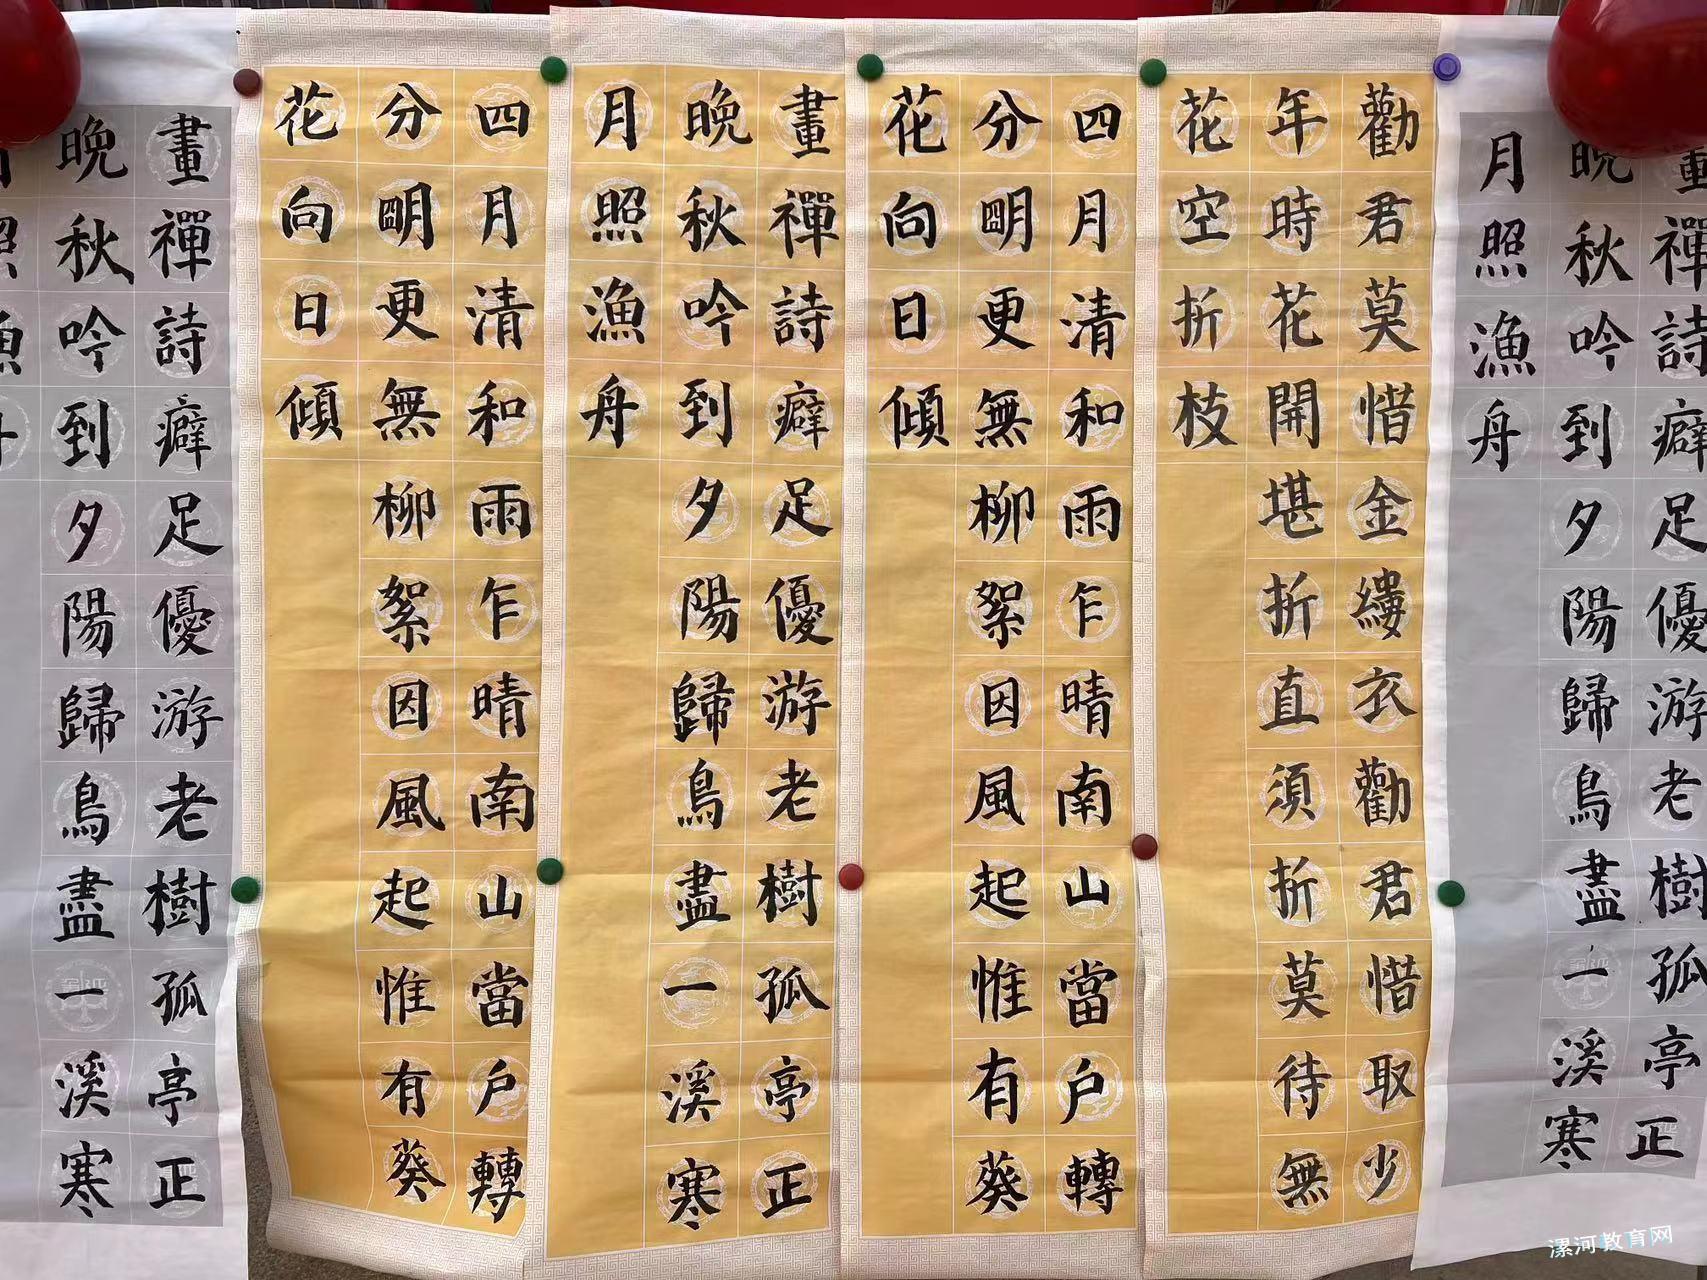 畫禪詩癖足優游老樹孤亭正
晚秋吟到夕陽歸鳥盡一溪寒
月照漁舟
勸君莫惜金縷衣勸君惜取少
年時花開堪折直須折莫待無
花空折枝
四月清和雨乍晴南山當户轉
分朙更無柳絮因風起惟有葵
花向日傾
畫禪詩癖足優游老樹孤亭正
晚秋吟到夕陽歸鳥盡一溪寒
月照漁舟
四月清和雨乍晴南山當户轉
分朙更無柳絮因風起惟有葵
花向日傾
畫禪詩癖足優游老樹孤亭正
晚秋吟到夕陽歸鳥盡一溪寒
漯河教育网